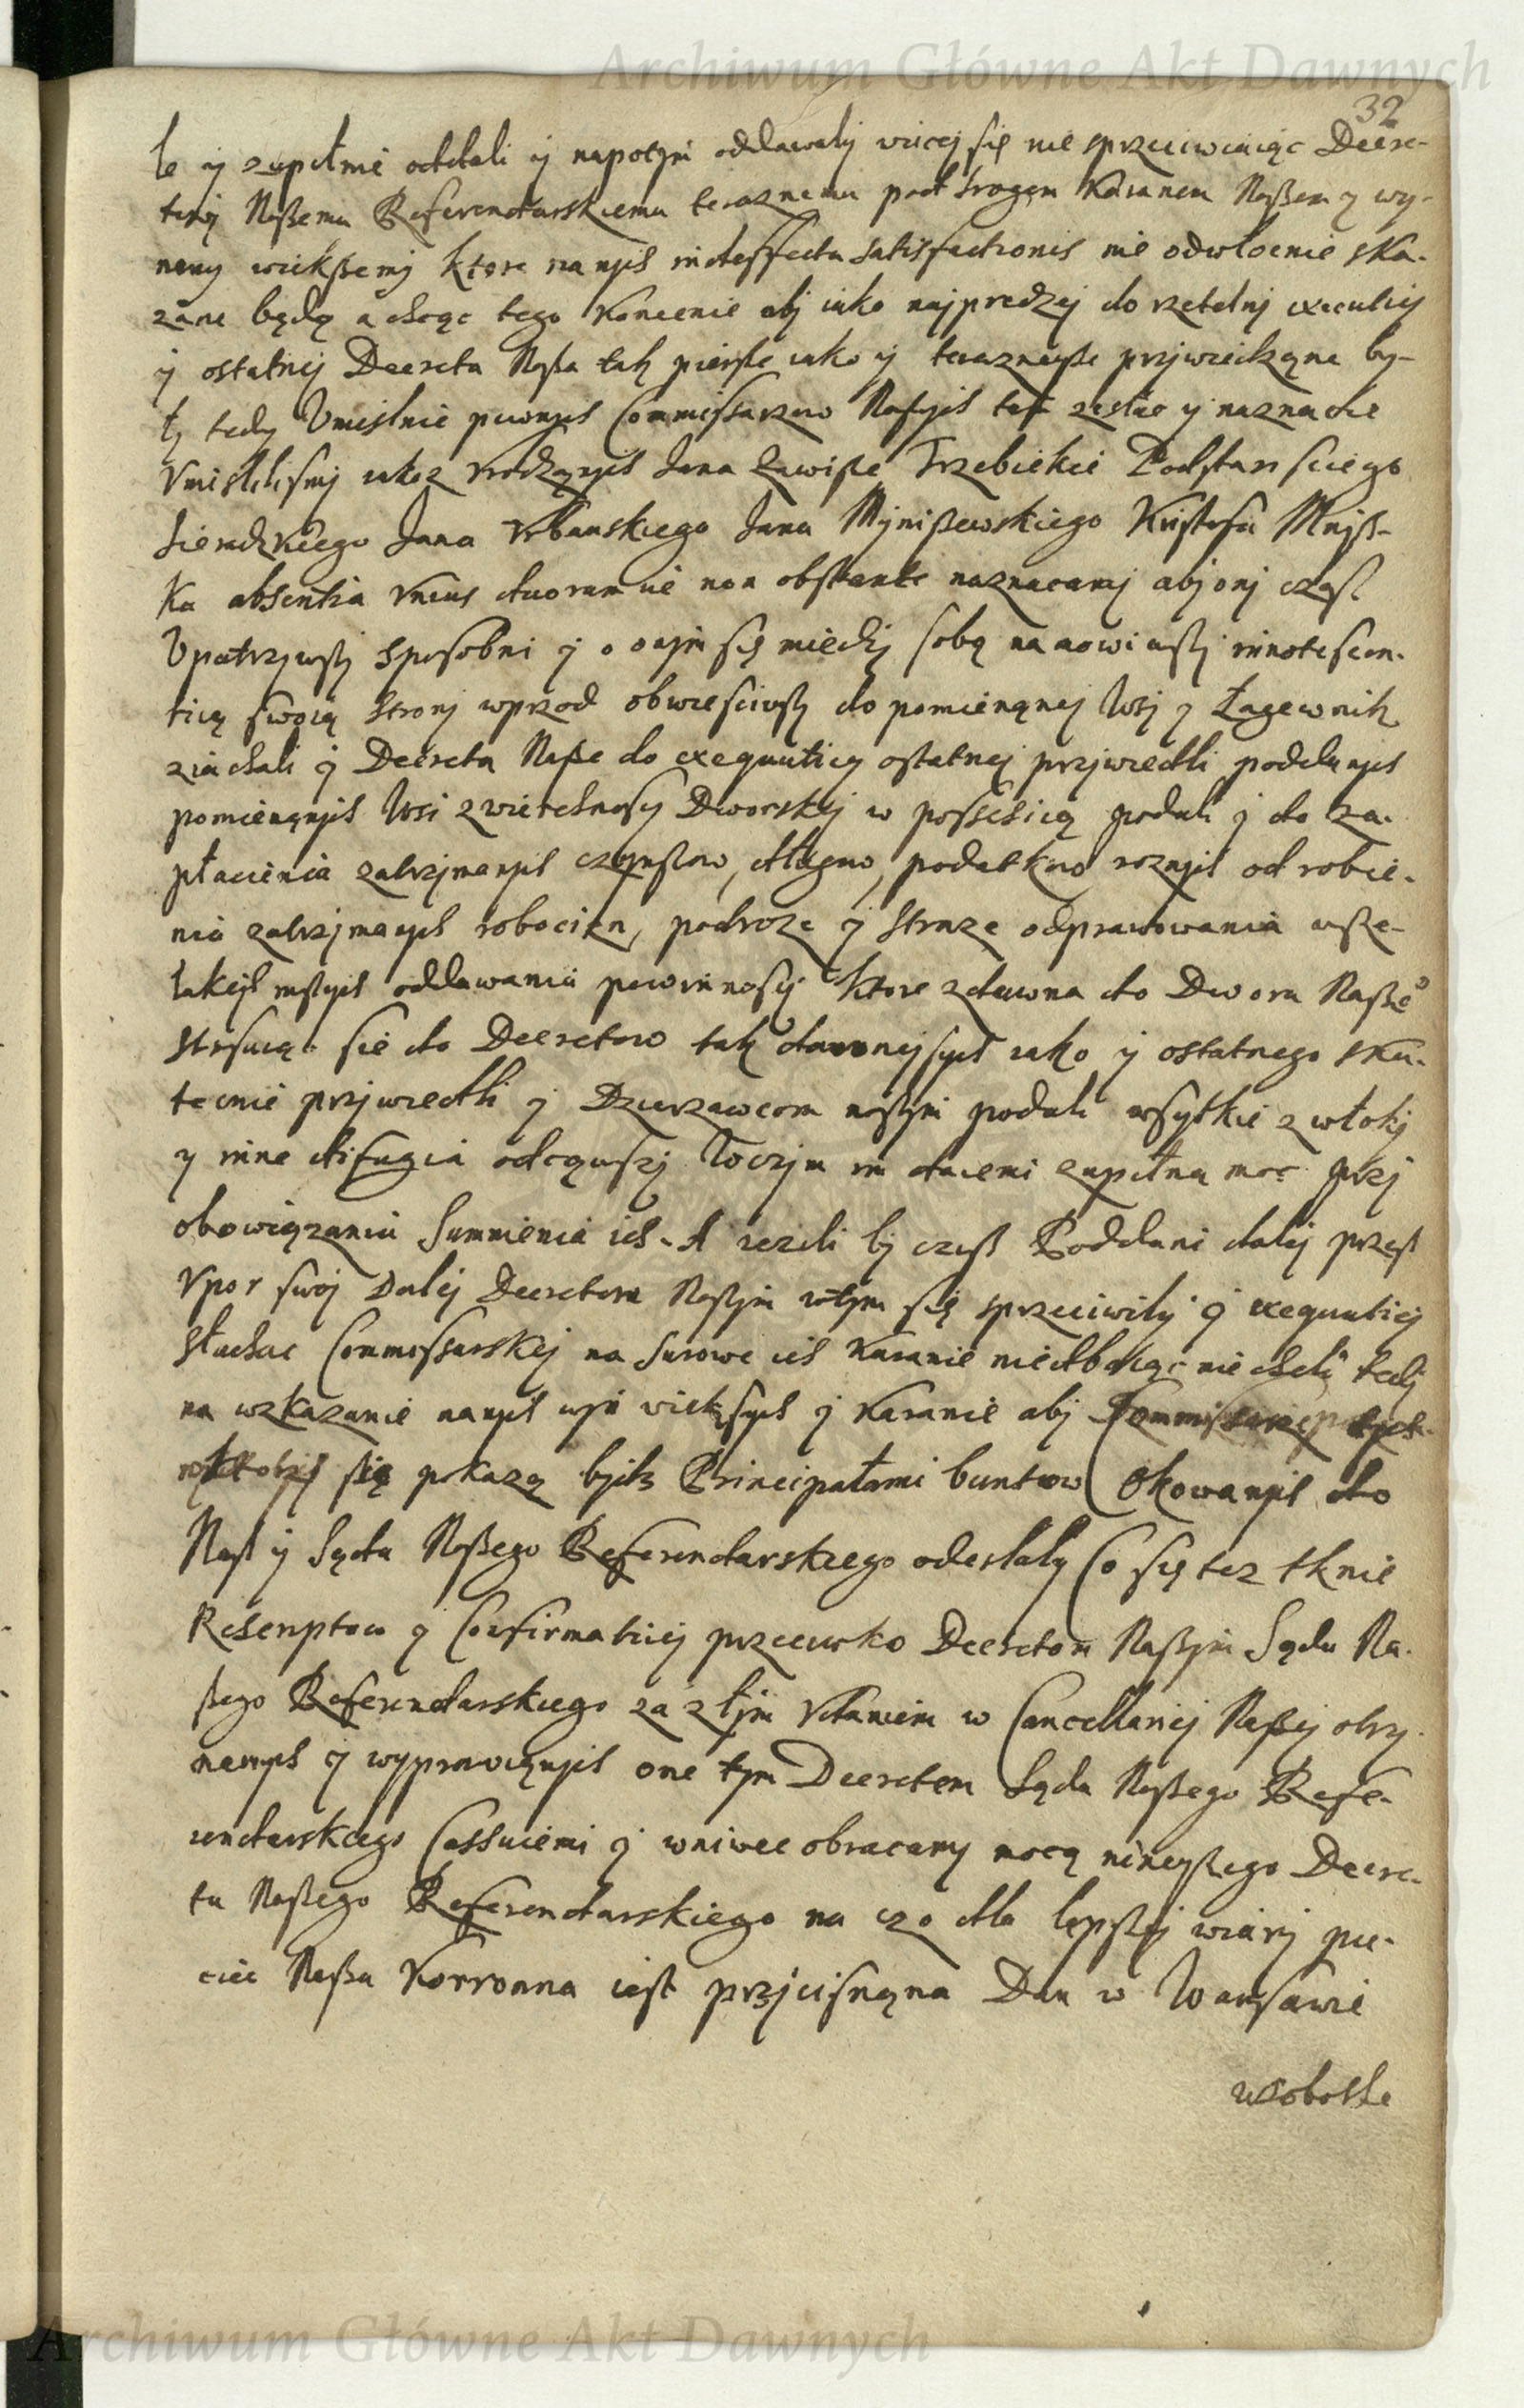 Archiwum Główne Akt Dawnych
32
le y zupełnie oddali y napotym oddawaly wiecej się nie sprzeciwiaiąc Decre-
towj Naßemu Referendarskiemu teraznemu pod srogem Karanem Naßem y wy-
namy wiekßemj ktore na nych in deffectu satisfactionis nie odwłocnie ska-
zane będą a chcąc tego Koncenie abj iako najpredzej do rzetelnj executiej
y ostatnej Decreta Naßa tak pierße iako y teraznieyße przjwiedzone by-
ły tedy Umislnie pewnych Commissarzow Naßych tak zesłac y naznacic
Vmislelismj iakoz Vrodzonych Jana Zawiße Trzebickie Podstarosciego
Sieradzkiego Jana Vrbanskiego Jana Mjnißewskiego Kristofa Mnjß-
ka absentia vnius duorumue non obstante naznacamj abj onj czaß
Upatrzjwßj sposobni y o onjm się miedzj sobą namowiwßj innotescen-
tią swoią Stronj wprzod obwiesciwßj do pomienionej Wsj y Łagewnik
ziachali y Decreta Naße do exequutiey ostatnej przjwiedli poddanych
pomienionjch Wsi zwierchnosci Dworskij w possessią podali y do za-
płacienia zatrzjmanych czynßow, długow, podatkow roznych odrobie-
nia zatrzjmanych robocizn, podroze y Straze odprawowania wße-
lakich inßych oddawania powinnosci ktore zdawna do Dworu Naße°
stosuiąc sie do Decretow tak dawnejszych iako y ostatnego sku-
tecnie przjwiedli y Dzierzawcom naßym podali wsytkie zwłokj
y inne difugia odciąwßj Wczjm im daiemi zupełną moc przj
obowiązaniu Sumnienia ich. A iezeli bj czaß Poddani dalej przeß
Vpor swoj Dalej Decretom Naßjm wtjm się sprzeciwilj y exequutiej
słuchac Commissarskiej na surowe ich Karanie niedbaiąc nie chcieli tedj
na wzkazanie nanych wjn wiekßych y karanie abj Commissarze tych
ktorzj się pokazą bjdz Principałami buntow Okowanych do
Naß y Sądu Naßego Referendarskiego odesłaly Co się tez tknie
Rescriptow y Confirmatiej przeciwko Decretom Naßjm Sądu Na-
ßego Referendarskiego za złjm Vdaniem w Cancellariej Naßej otrzy-
manych y wyprawionych one tym Decretem Sądu Naßego Refe-
rendarskiego Cassuiemi y wniwec obracamy mocą ninieyßego Decre-
tu Naßego Referendarskiego na czo dla lepßej wiarj pie-
ciec Naßa Korronna iest przjcisnęna Dan w Warsawie
wsobothe
Archiwum Główne Akt Dawnych